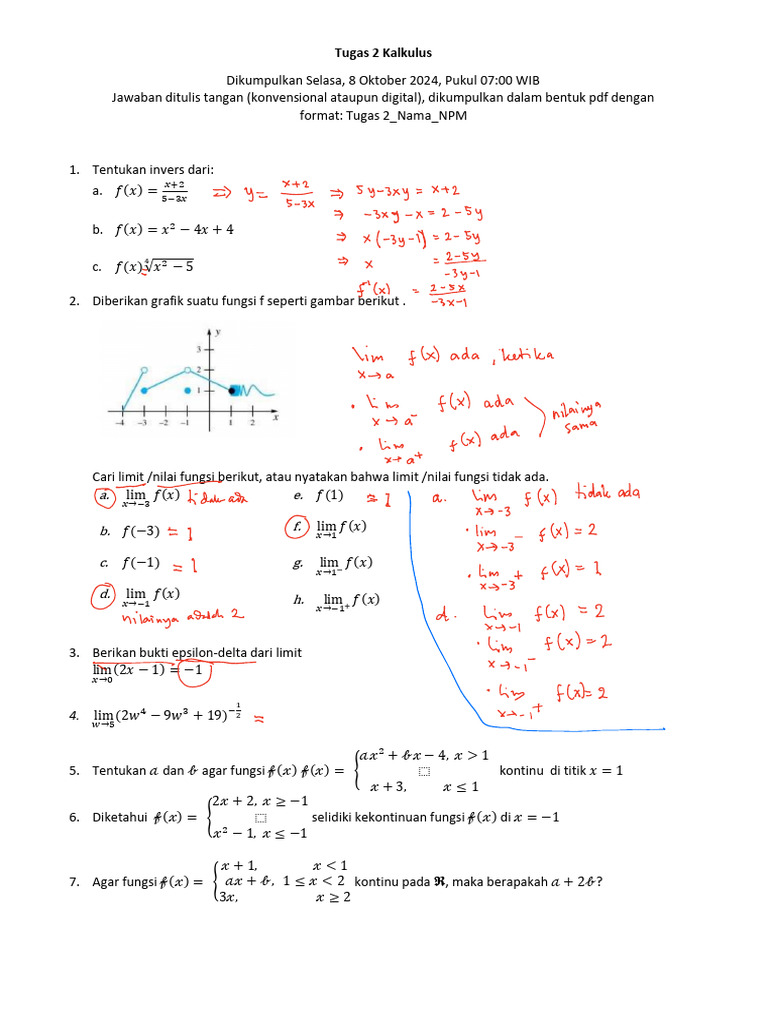 Tugas 2 Kalkulus
Dikumpulkan Selasa, 8 Oktober 2024, Pukul 07:00 WIB
Jawaban ditulis tangan (konvensional ataupun digital), dikumpulkan dalam bentuk pdf dengan
format: Tugas 2_Nama_NPM
1. Tentukan invers dari:
a. f(x) = (x+2)/(5−3x) ⇒ y = (x+2)/(5-3x) ⇒ 5y-3xy = x+2
⇒ -3xy - x = 2 - 5y
b. f(x) = x² − 4x + 4
⇒ x(-3y-1) = 2-5y
c. f(x) ∜(x² − 5)
⇒ x = (2-5y)/(-3y-1)
f⁻¹(x) = (2-5x)/(-3x-1)
2. Diberikan grafik suatu fungsi f seperti gambar berikut .
y
3
2
1
-4 -3 -2 -1 1 2 x
lim x→a f(x) ada, ketika
• lim x→a⁻ f(x) ada
• lim x→a⁺ f(x) ada
nilainya
sama
Cari limit /nilai fungsi berikut, atau nyatakan bahwa limit /nilai fungsi tidak ada.
a. lim x→−3 f(x) tidak ada e. f(1) = 1
b. f(−3) = 1 f. lim x→1 f(x)
c. f(−1) = 1 g. lim x→1⁻ f(x)
d. lim x→−1 f(x) h. lim x→−1⁺ f(x)
nilainya adalah 2
a. lim x→-3 f(x) tidak ada
• lim x→-3⁻ f(x) = 2
• lim x→-3⁺ f(x) = 1
d. lim x→-1 f(x) = 2
• lim x→-1⁻ f(x) = 2
• lim x→-1⁺ f(x) = 2
3. Berikan bukti epsilon-delta dari limit
lim x→0 (2x − 1) = −1
4. lim w→5 (2w⁴ − 9w³ + 19)^(−1/2) =
5. Tentukan a dan b agar fungsi f(x) f(x) = { ax² + bx − 4, x > 1 kontinu di titik x = 1
x + 3, x ≤ 1
6. Diketahui f(x) = { 2x + 2, x ≥ −1 selidiki kekontinuan fungsi f(x) di x = −1
x² − 1, x ≤ −1
7. Agar fungsi f(x) = { x + 1, x < 1
ax + b, 1 ≤ x < 2 kontinu pada ℜ, maka berapakah a + 2b?
3x, x ≥ 2